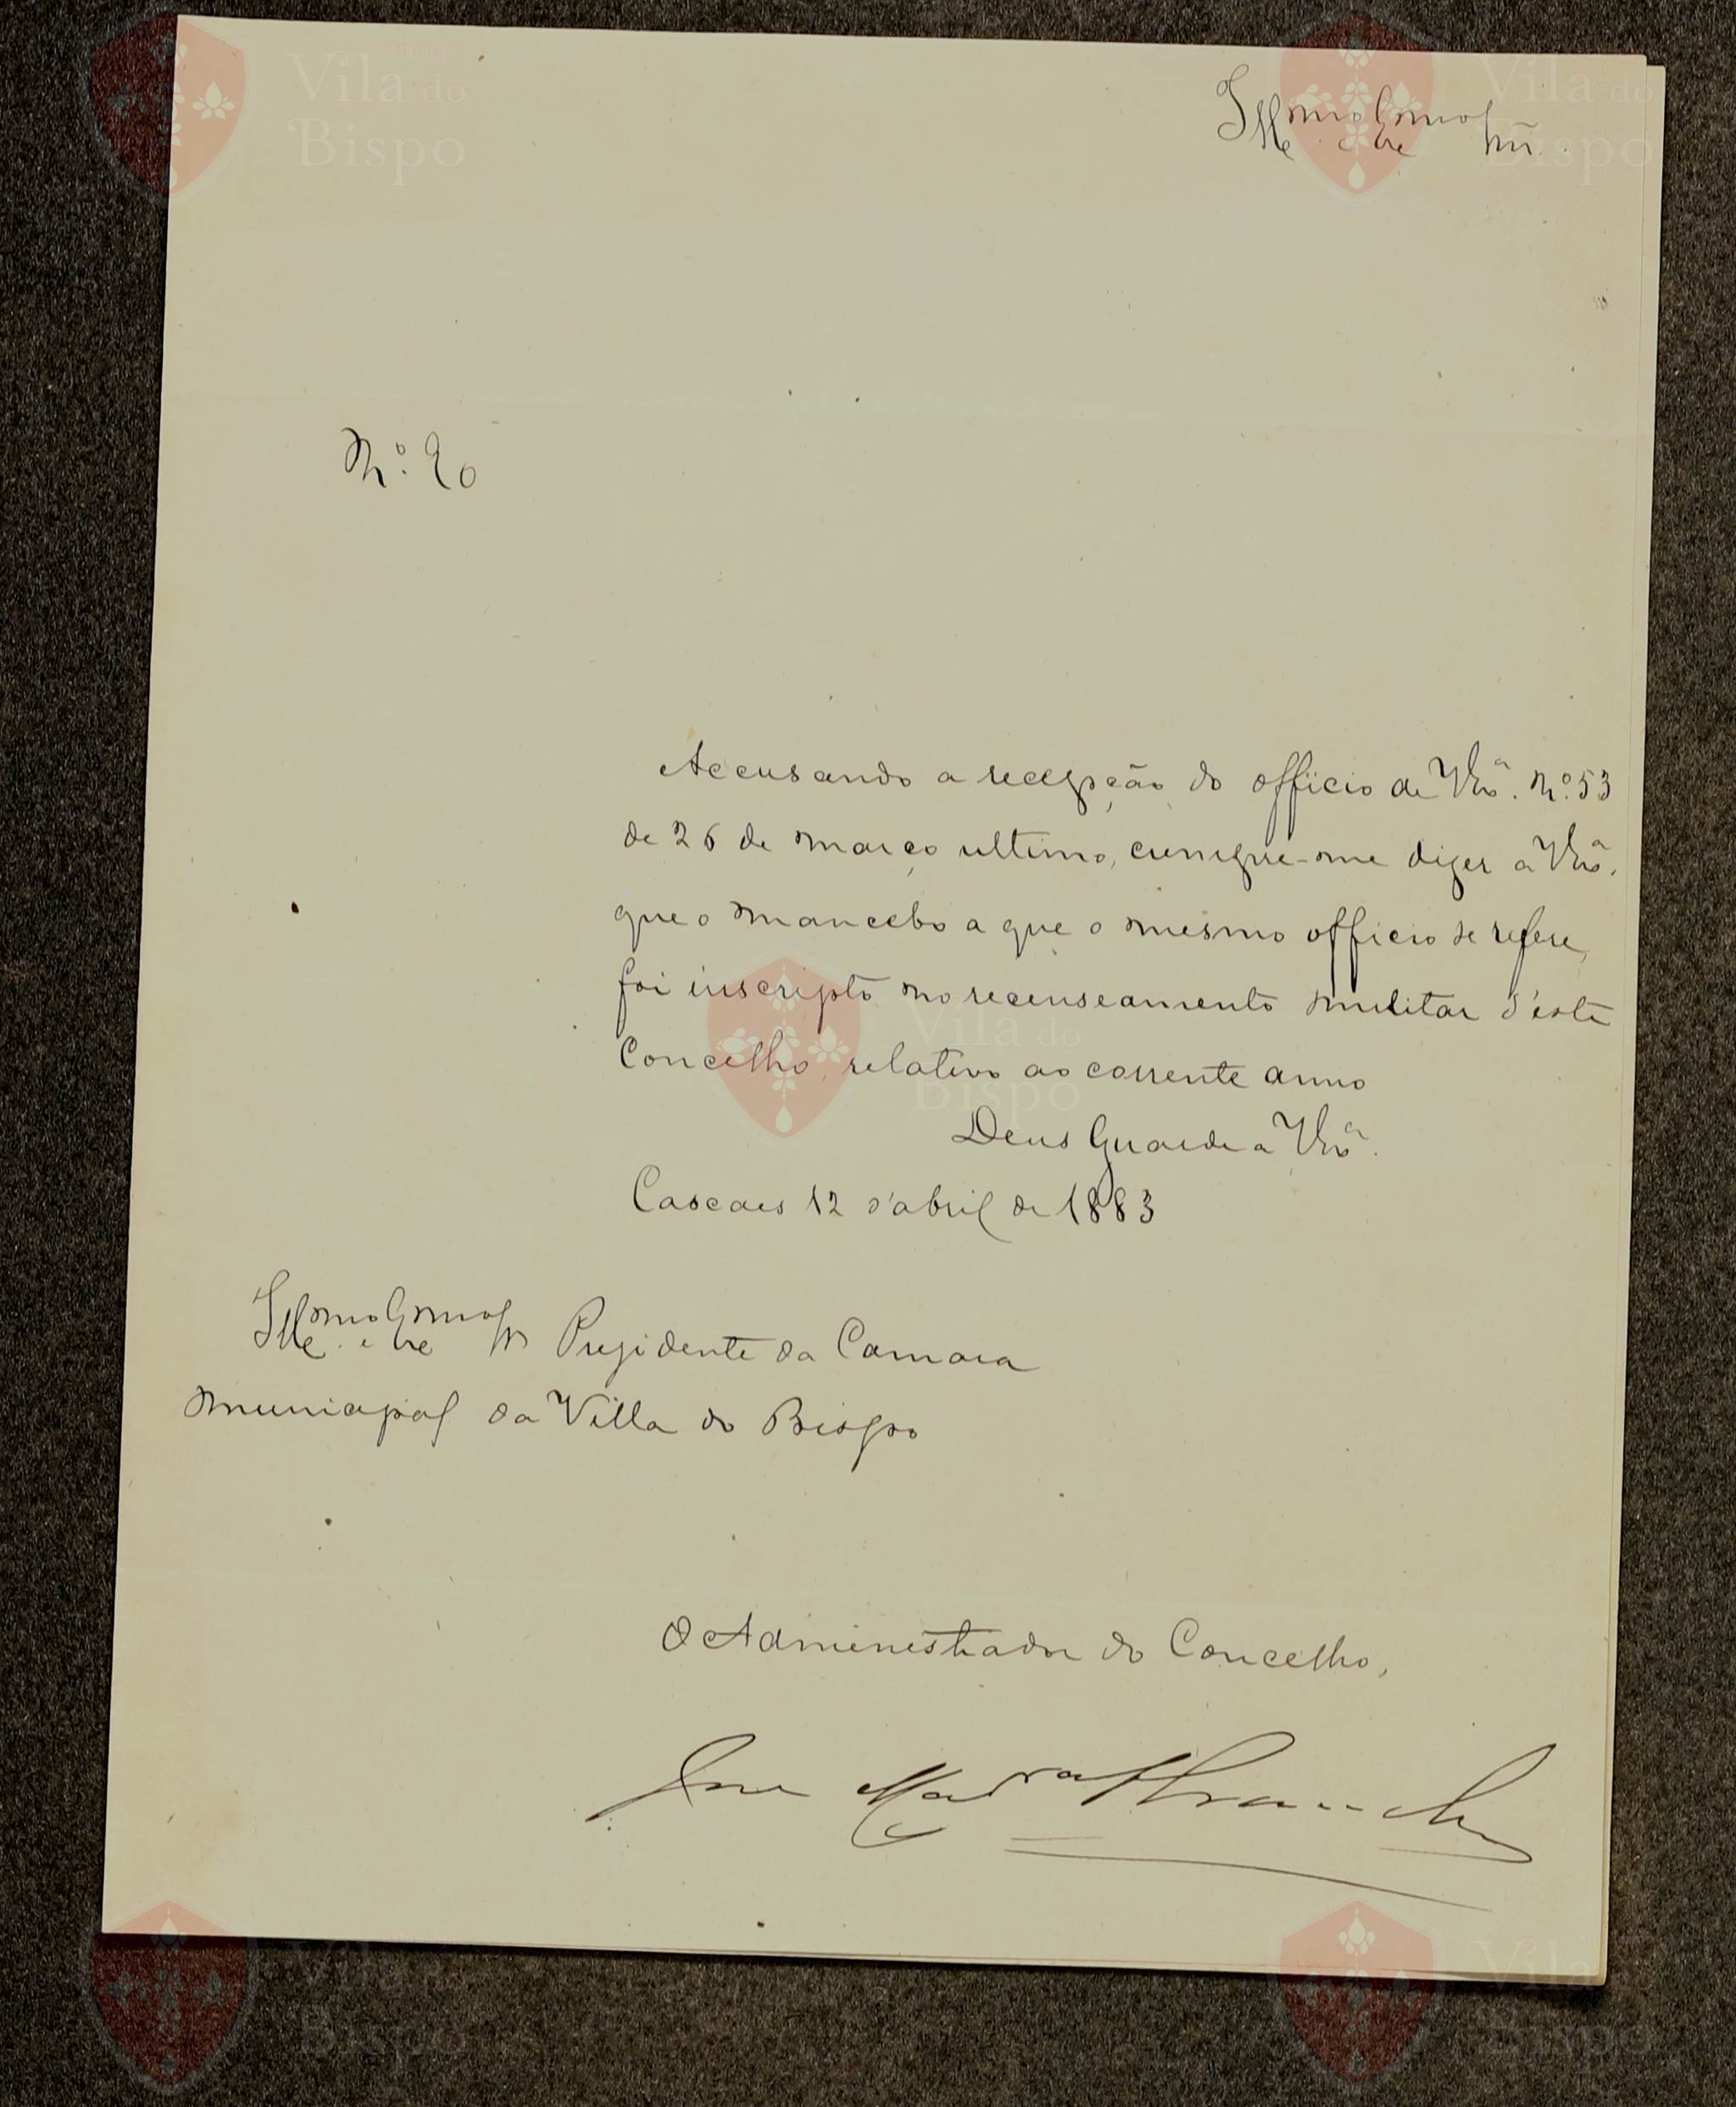 Illmo e Exmo Snr.
Nº. 20
Accusando a recepção do officio de VExª. Nº. 53
de 26 de março ultimo, cumpre-me dizer a VExª.
que o mancebo a que o mesmo officio se refere,
foi inscripto no recenseamento militar d'este
Concelho, relativo ao corrente anno
Deus Guarde a VExª.
Cascaes 12 d'abril de 1883
Illmo e Exmo Snr Prezidente da Camara
Municipal da Villa do Bispo
O Administrador do Concelho,
Vila do
Bispo
Vila do
Bispo
Vila do
Bispo
Vila
Bispo
Vila
Bispo